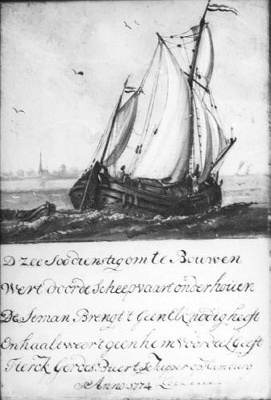 D zee Soo dienstig om te Bouwen
Wert door de Scheepvaart onderhouen
De Seman Brengt 't Geen Elk nodig heeft
En haalt weer t geen hem Voordeel Geeft
Tierck Gerdes Buert Schiper op
Anno 1774